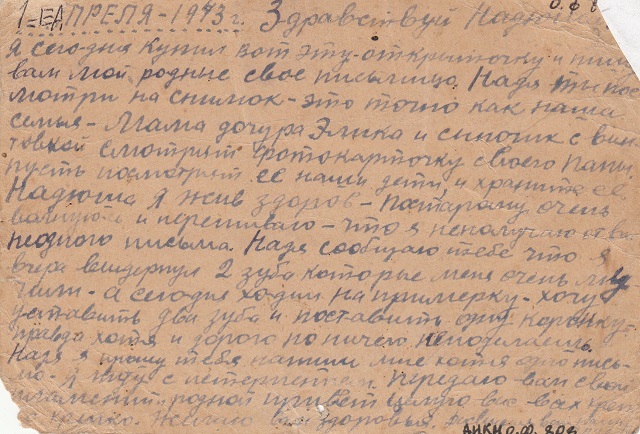 1-ЕАПРЕЛЯ-1943 г. Здравствуй Надюша
О.Ф
Я сегодня купил вот эту-открыточку и пишу
вам мои родные свое письмицо. Надя ты пос-
мотри на снимок-это точно как наша
семья-Мама дочура Элика и синочик с вин-
товкой смотрят фотокарточку своего папы.
пусть посмотрят ее наши дети, и храните ее
Надюша я жив здоров-постарому очень
волнуюсь и переживаю-что я неполучаю от вас
неодного письма. Надя сообщаю тебе что я
вчера выдернул 2 зуба которые меня очень му
чили-а сегодня ходил на примерку-хочу
уставить два зуба и поставить одну коронку-
правда хотя и дорого но ничего неподелаешь.
Надя я прошу тебя напиши мне хотя одно пись-
мо-я жду с нетерпением. Передаю вам свой
пламенный родной привет целую вас всех
крепко. Желаю вам здоровья.
АИКМ О.Ф.